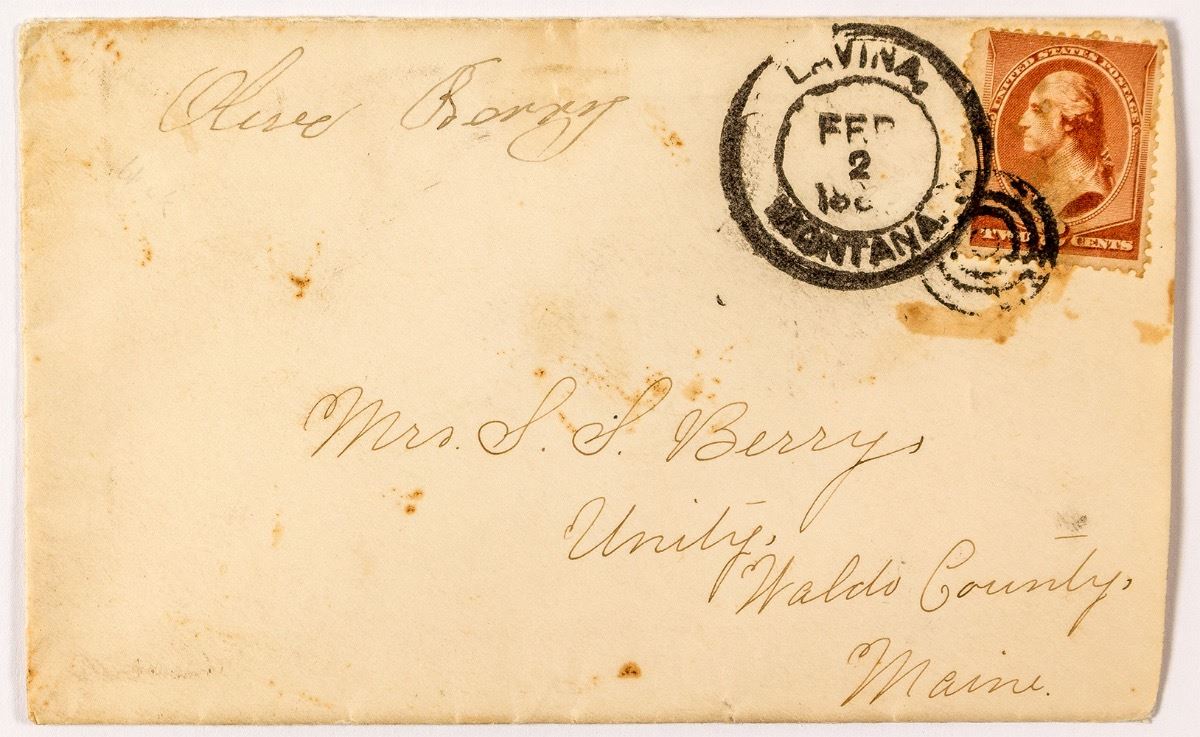 Olive Berry
LAVINA,
FEB
2
188
MONTANA.
UNITED STATES POSTAGE
TWO CENTS
Mrs. S. S. Berry,
Unity,
Waldo County,
Maine.